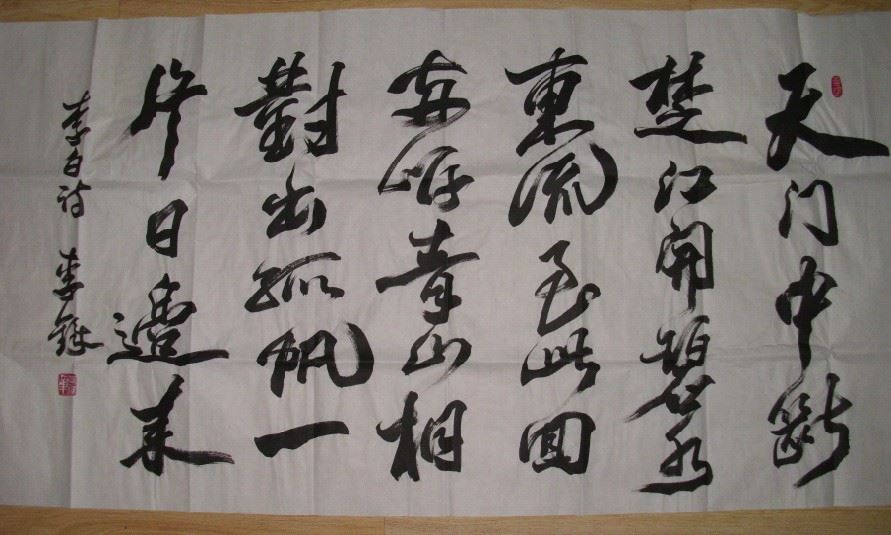 天门中斷
楚江開碧水
東流至此回
两岸青山相
對出孤帆一
片日邊来
李白诗 李